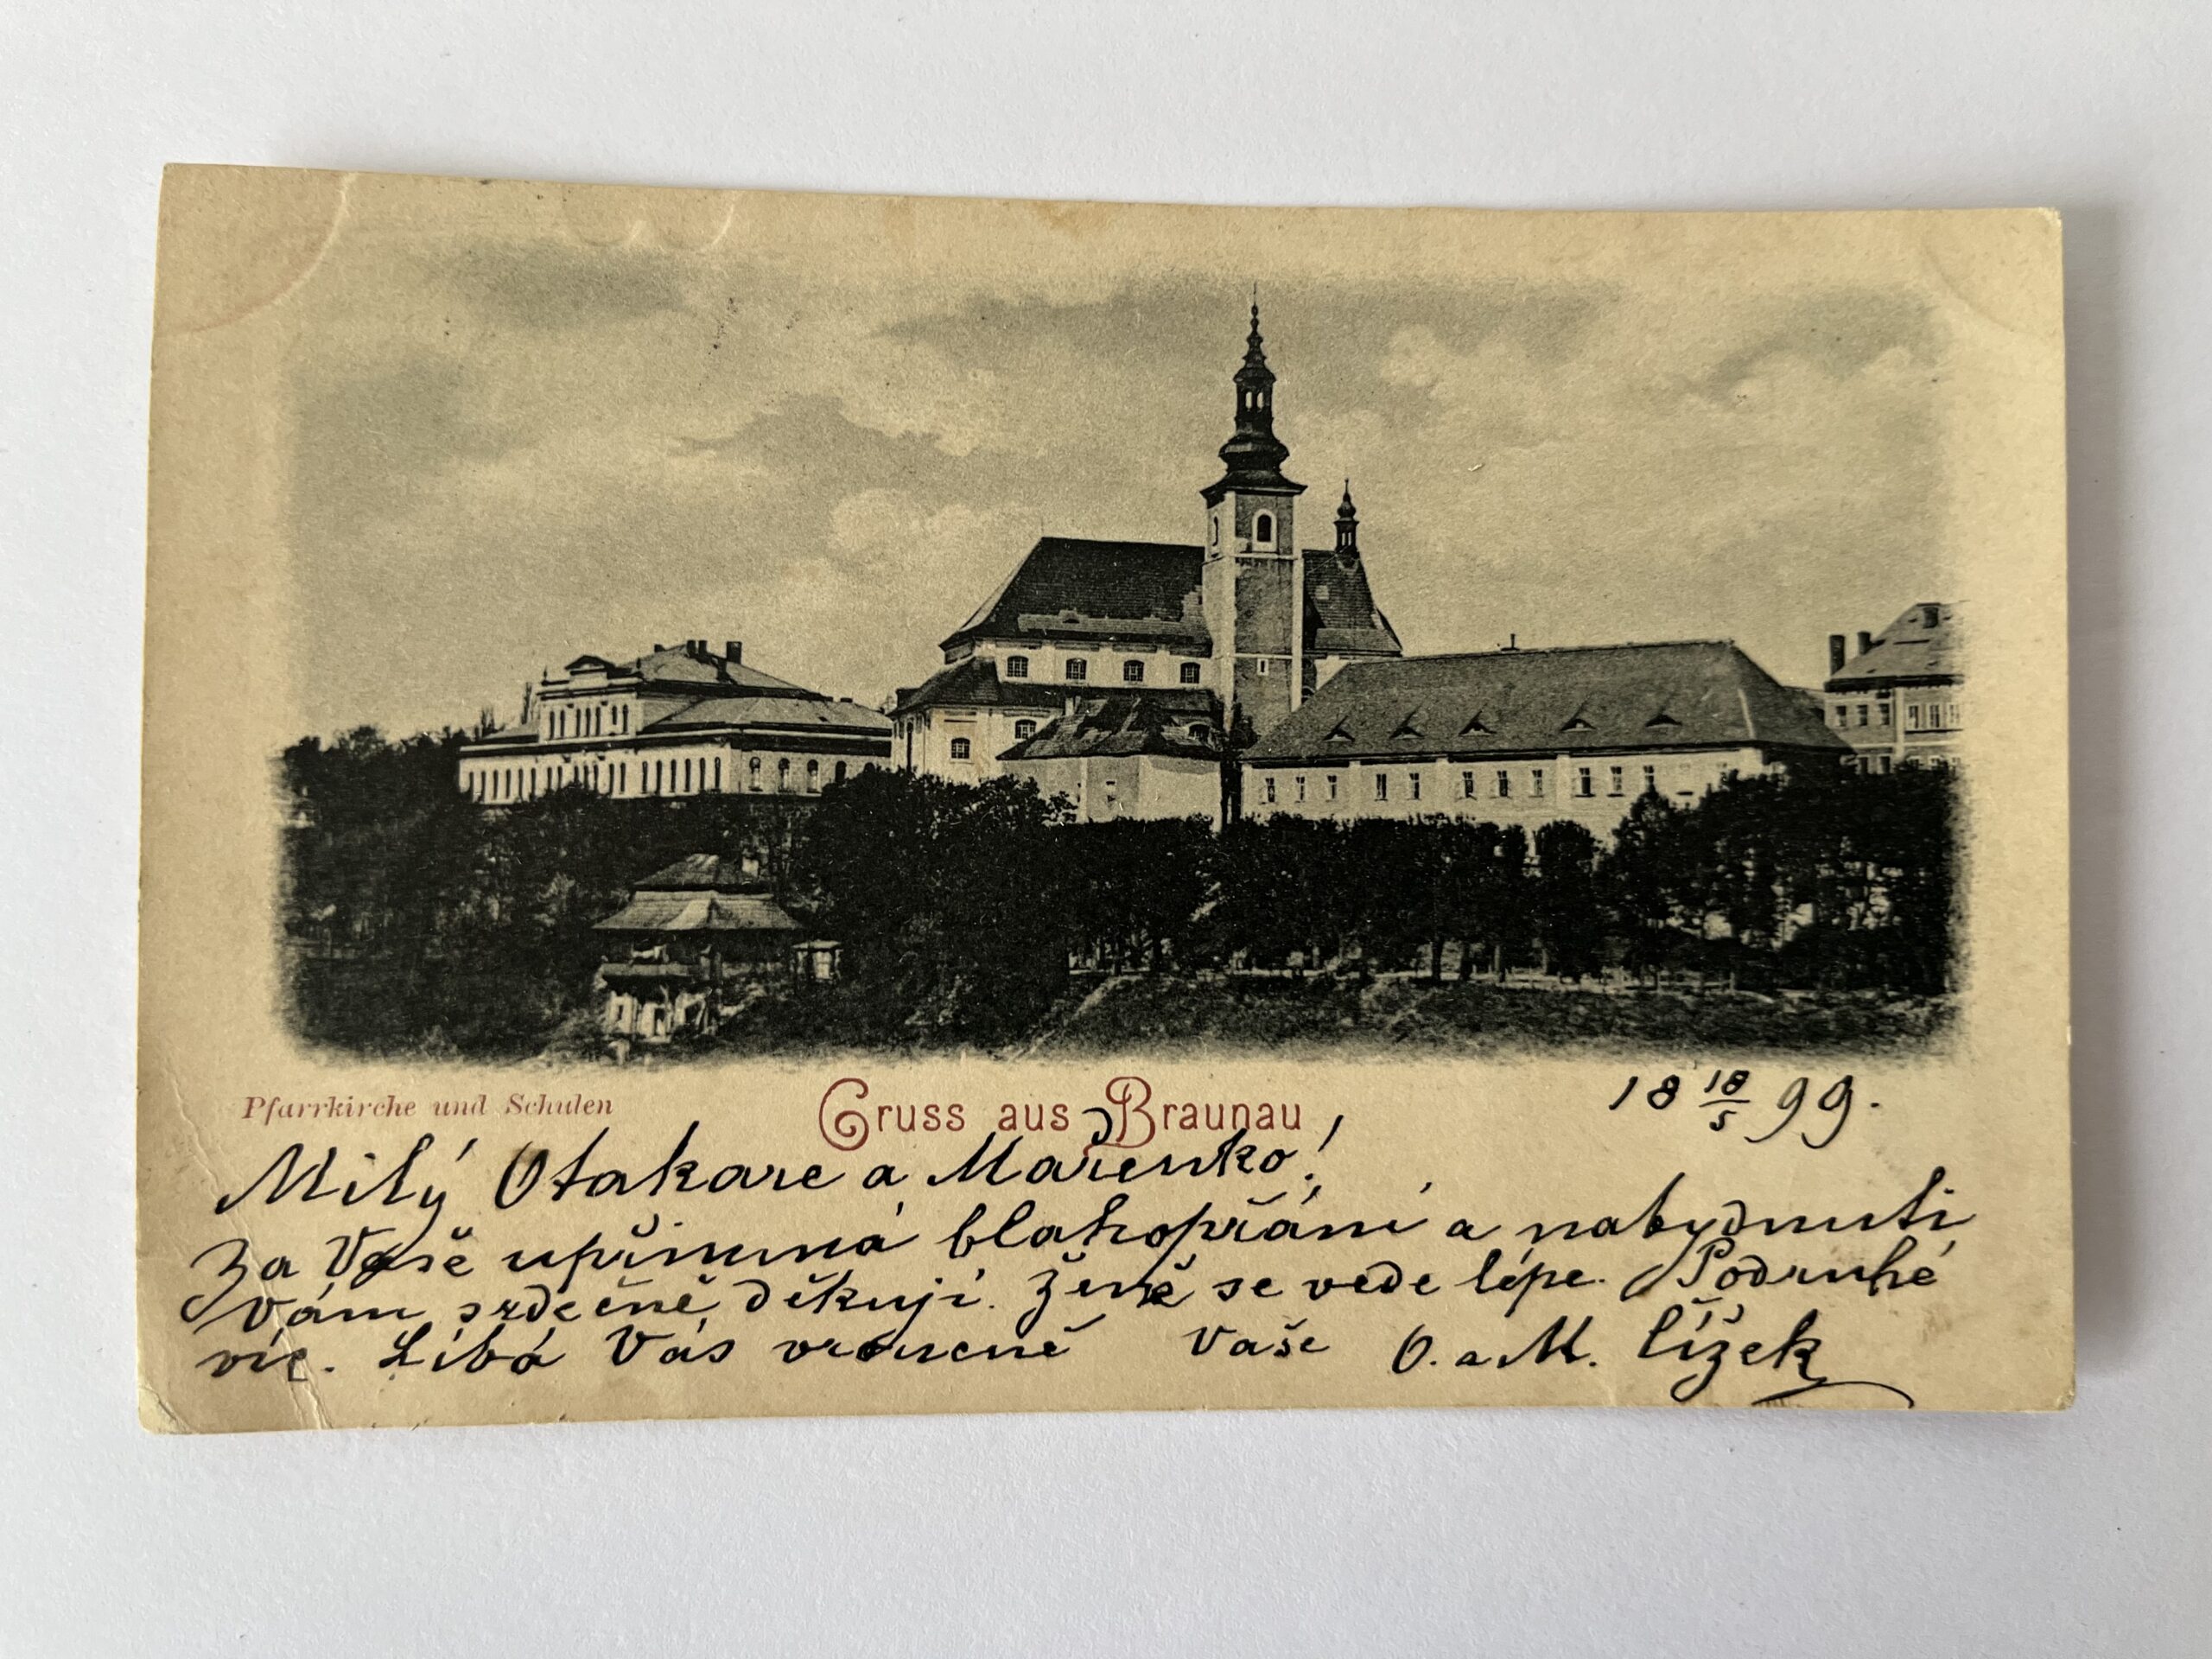 Pfarrkirche und Schulen
Gruss aus Braunau
18 18/5 99.
Milý Otakare a Mařenko!
Za Vaše upřimná blahopřání a nabydnutí
Vám srdečně děkuji. Ženě se vede lépe. Podruhé
víc. Líbá Vás vroucně Vaše O. a M. Čížek